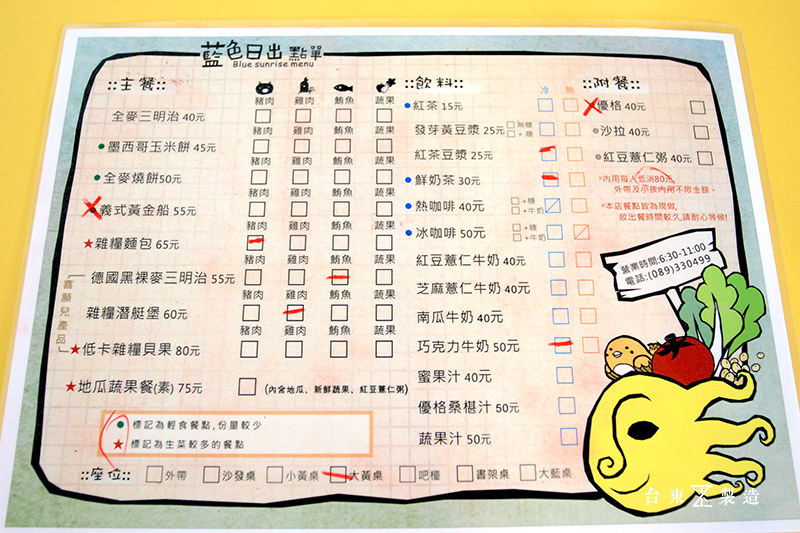 藍色日出 點單
Blue sunrise menu
::主餐::
豬肉 雞肉 鮪魚 蔬果
全麥三明治 40元
豬肉 雞肉 鮪魚 蔬果
●墨西哥玉米餅 45元
豬肉 雞肉 鮪魚 蔬果
●全麥燒餅50元
豬肉 雞肉 鮪魚 蔬果
●義式黃金船 55元
豬肉 雞肉 鮪魚 蔬果
★雜糧麵包 65元
豬肉 雞肉 鮪魚 蔬果
喜願兒產品
德國黑裸麥三明治 55元
豬肉 雞肉 鮪魚 蔬果
雜糧潛艇堡 60元
豬肉 雞肉 鮪魚 蔬果
★低卡雜糧貝果 80元
★地瓜蔬果餐(素) 75元 (內含地瓜、新鮮蔬果、紅豆薏仁粥)
●標記為輕食餐點,份量較少
★標記為生菜較多的餐點
::飲料:: 冷 熱
●紅茶 15元
發芽黃豆漿 25元 無糖 +糖
紅茶豆漿 25元
●鮮奶茶 30元
●熱咖啡 40元 +糖 +牛奶
●冰咖啡 50元 +糖 +牛奶
紅豆薏仁牛奶 40元
芝麻薏仁牛奶 40元
南瓜牛奶 40元
巧克力牛奶 50元
蜜果汁 40元
優格桑椹汁 50元
蔬果汁 50元
::附餐::
●優格 40元
●沙拉 40元
●紅豆薏仁粥 40元
*內用每人低消80元,
外帶及小孩內用不限金額。
*本店餐點皆為現做,
故出餐時間較久,請耐心等候!
營業時間:6:30-11:00
電話:(089)330499
::座位:: 外帶 沙發桌 小黃桌 大黃桌 吧檯 書架桌 大藍桌
台東製造